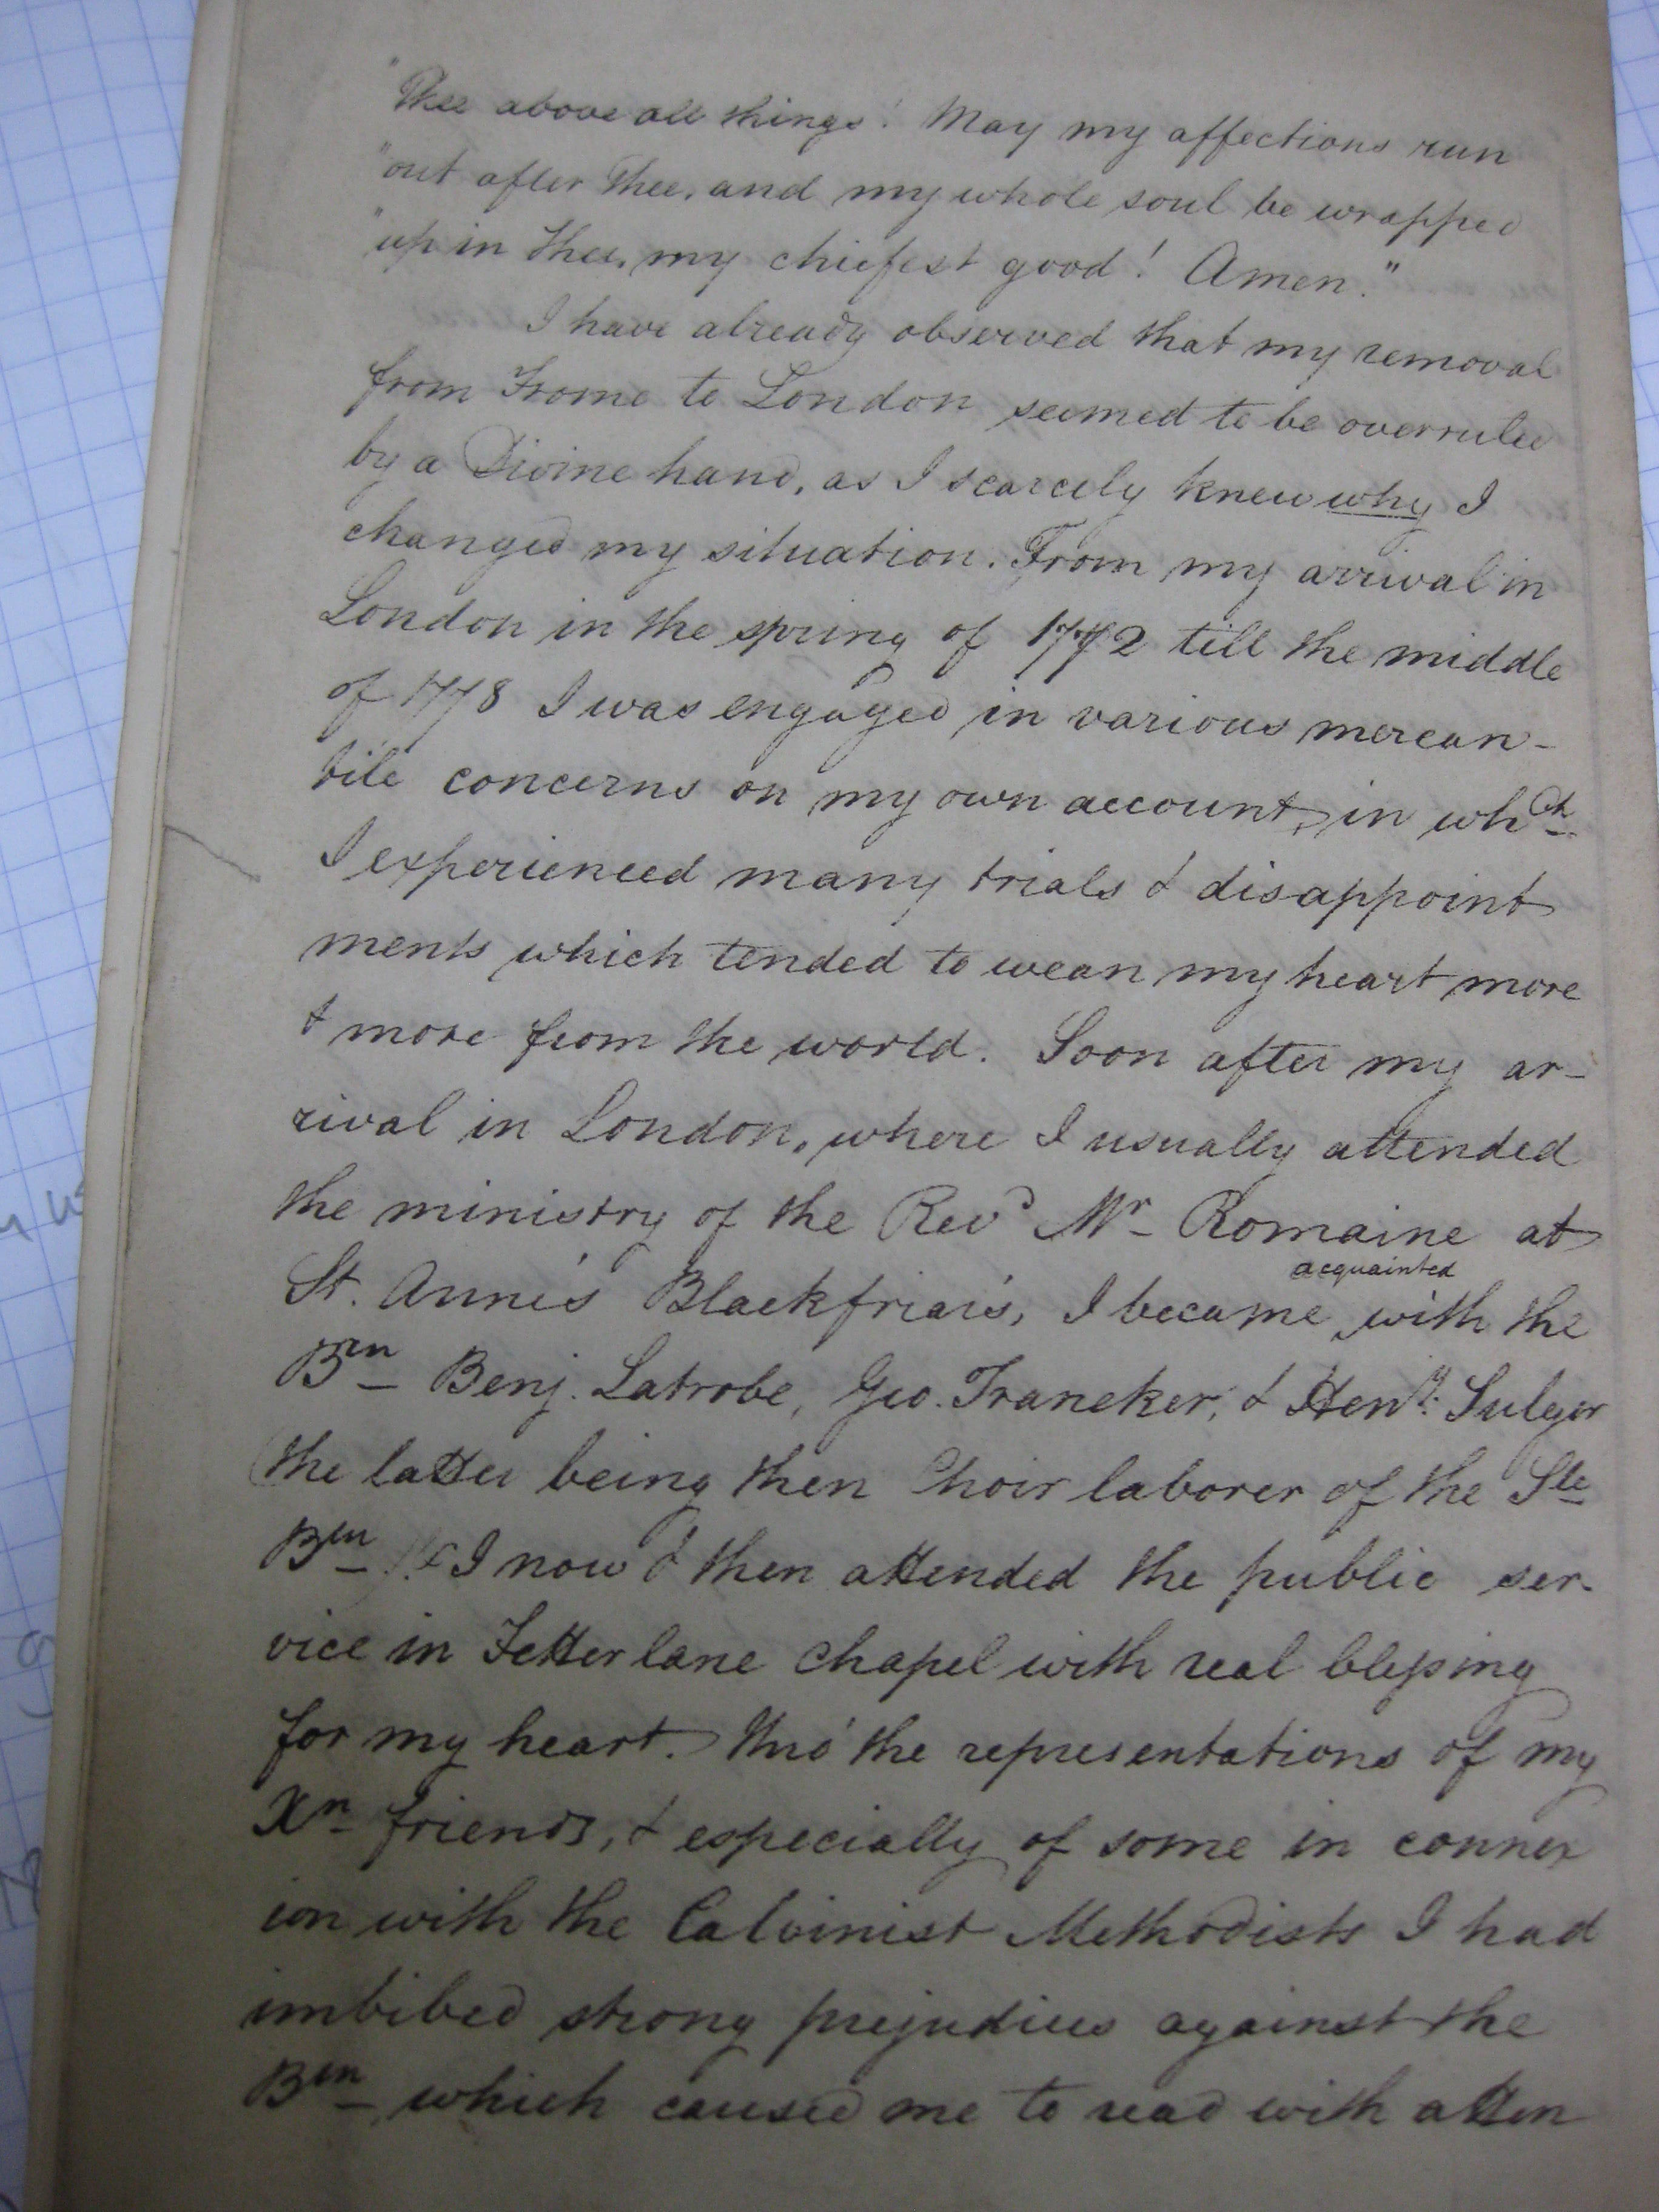 "Thee above all things! May my affections run
"out after Thee, and my whole soul be wrapped
"up in thee, my chiefest good! Amen."
I have already observed that my removal
from Frome to London seemed to be overruled
by a Divine hand, as I scarcely knew why I
changed my situation. From my arrival in
London in the spring of 1772 till the middle
of 1778 I was engaged in various mercan-
tile concerns on my own account, in whch
I experienced many trials & disappoint
ments which tended to wean my heart more
& more from the world. Soon after my ar-
rival in London, where I usually attended
the ministry of the Revd Mr Romaine at
St. Anne's Blackfriar's, I became acquainted with the
Brn Benj. Latrobe, Geo. Traneker, & Heny. Sulger
(the latter being then Choir laborer of the Sle
Brn) & I now & then attended the public ser-
vice in Fetter lane Chapel with real blessing
for my heart. Thro' the representations of my
Xn friends, & especially of some in connex
ion with the Calvinist Methodists I had
imbibed strong prejudices against the
Brn which caused me to read with atten